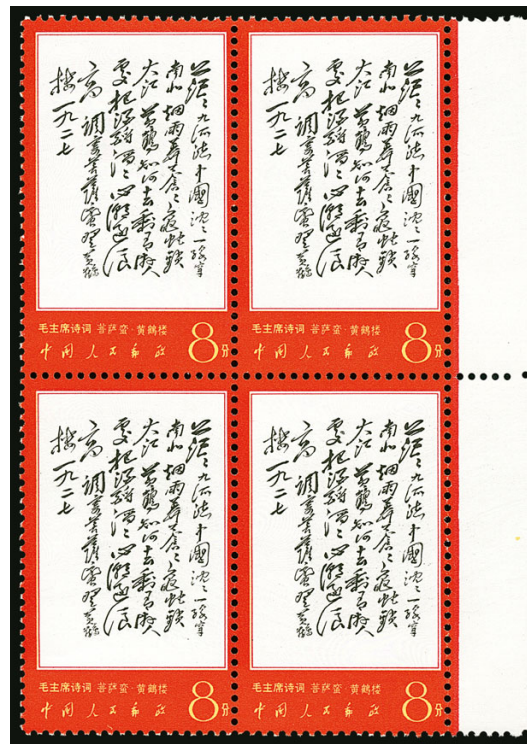 茫々九派流中國沈々一線穿
南北烟雨莽蒼々龜蛇鎖
大江黄鶴知何去剩有游人
處把酒酹滔々心潮逐浪
高 調寄菩薩蛮登黄鶴
楼 一九二七
毛主席诗词 菩萨蛮·黄鹤楼
中国人民邮政 8分
茫々九派流中國沈々一線穿
南北烟雨莽蒼々龜蛇鎖
大江黄鶴知何去剩有游人
處把酒酹滔々心潮逐浪
高 調寄菩薩蛮登黄鶴
楼 一九二七
毛主席诗词 菩萨蛮·黄鹤楼
中国人民邮政 8分
茫々九派流中國沈々一線穿
南北烟雨莽蒼々龜蛇鎖
大江黄鶴知何去剩有游人
處把酒酹滔々心潮逐浪
高 調寄菩薩蛮登黄鶴
楼 一九二七
毛主席诗词 菩萨蛮·黄鹤楼
中国人民邮政 8分
茫々九派流中國沈々一線穿
南北烟雨莽蒼々龜蛇鎖
大江黄鶴知何去剩有游人
處把酒酹滔々心潮逐浪
高 調寄菩薩蛮登黄鶴
楼 一九二七
毛主席诗词 菩萨蛮·黄鹤楼
中国人民邮政 8分